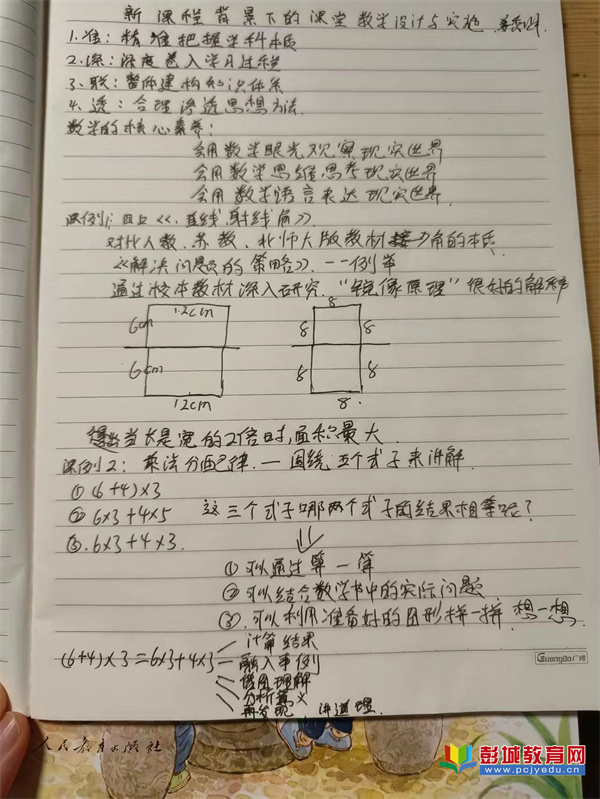 新课程背景下的课堂教学设计与实施
1.准：精准把握学科本质
2.深：深度卷入学习过程
3.联：整体建构知识体系
4.透：合理渗透思想方法.
数学的核心素养：
会用数学眼光观察现实世界
会用数学思维思考现实世界
会用数学语言表达现实世界.
课例1：四上《直线射线角》.
对比人教、苏教、北师大版教材 角的本质
《解决问题的策略》.一一列举
通过校本教材深入研究."镜像原理"很好的解释
12cm
6cm
6cm
12cm
8
8 8
8 8
8.
得出当长是宽的2倍时,面积最大.
课例2：乘法分配律.—围绕五个式子来讲解.
①(6+4)×3
②6×3+4×5 这三个式子哪两个式子的结果相等呢？
③.6×3+4×3.
①可以通过算一算
②可以结合数学书中的实际问题
③.可以利用准备好的图形拼一拼,想一想.
(6+4)×3=6×3+4×3
计算结果
融入事例
借图理解
分析算义
再发现 讲道理.
GuangBo广博
人民教育出版社
彭城教育网
www.pcjyedu.cn